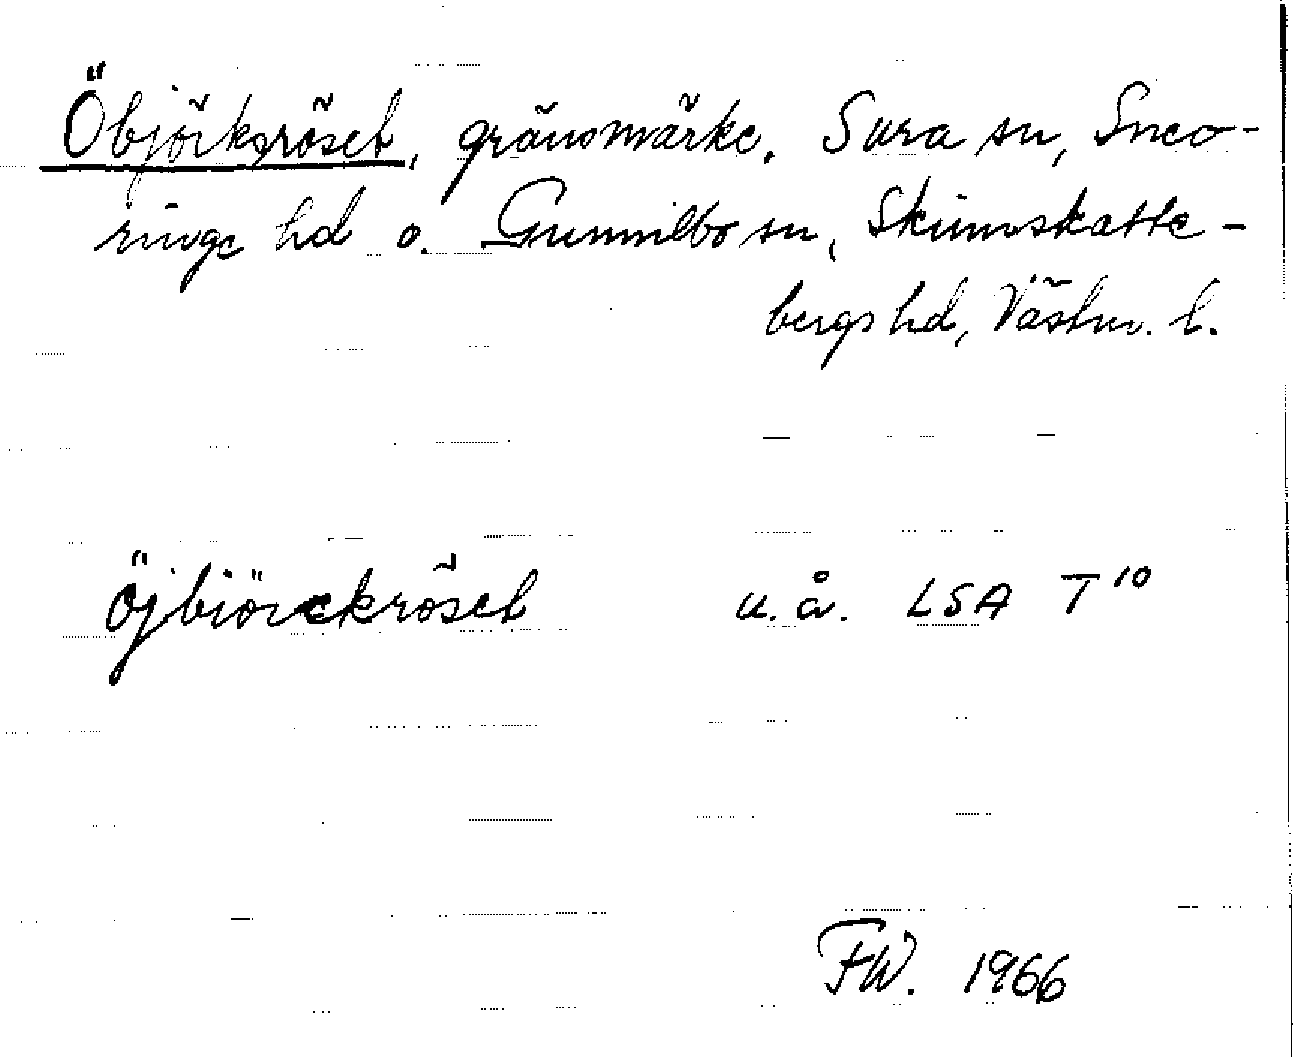 Öbjörkröset, gränsmärke, Sura sn, Snevringe hd o. Gunnilbo sn, Skinnskattebergs hd, Västm. l.
Öjbiörckröset u.å. LSA T 10
FW. 1966